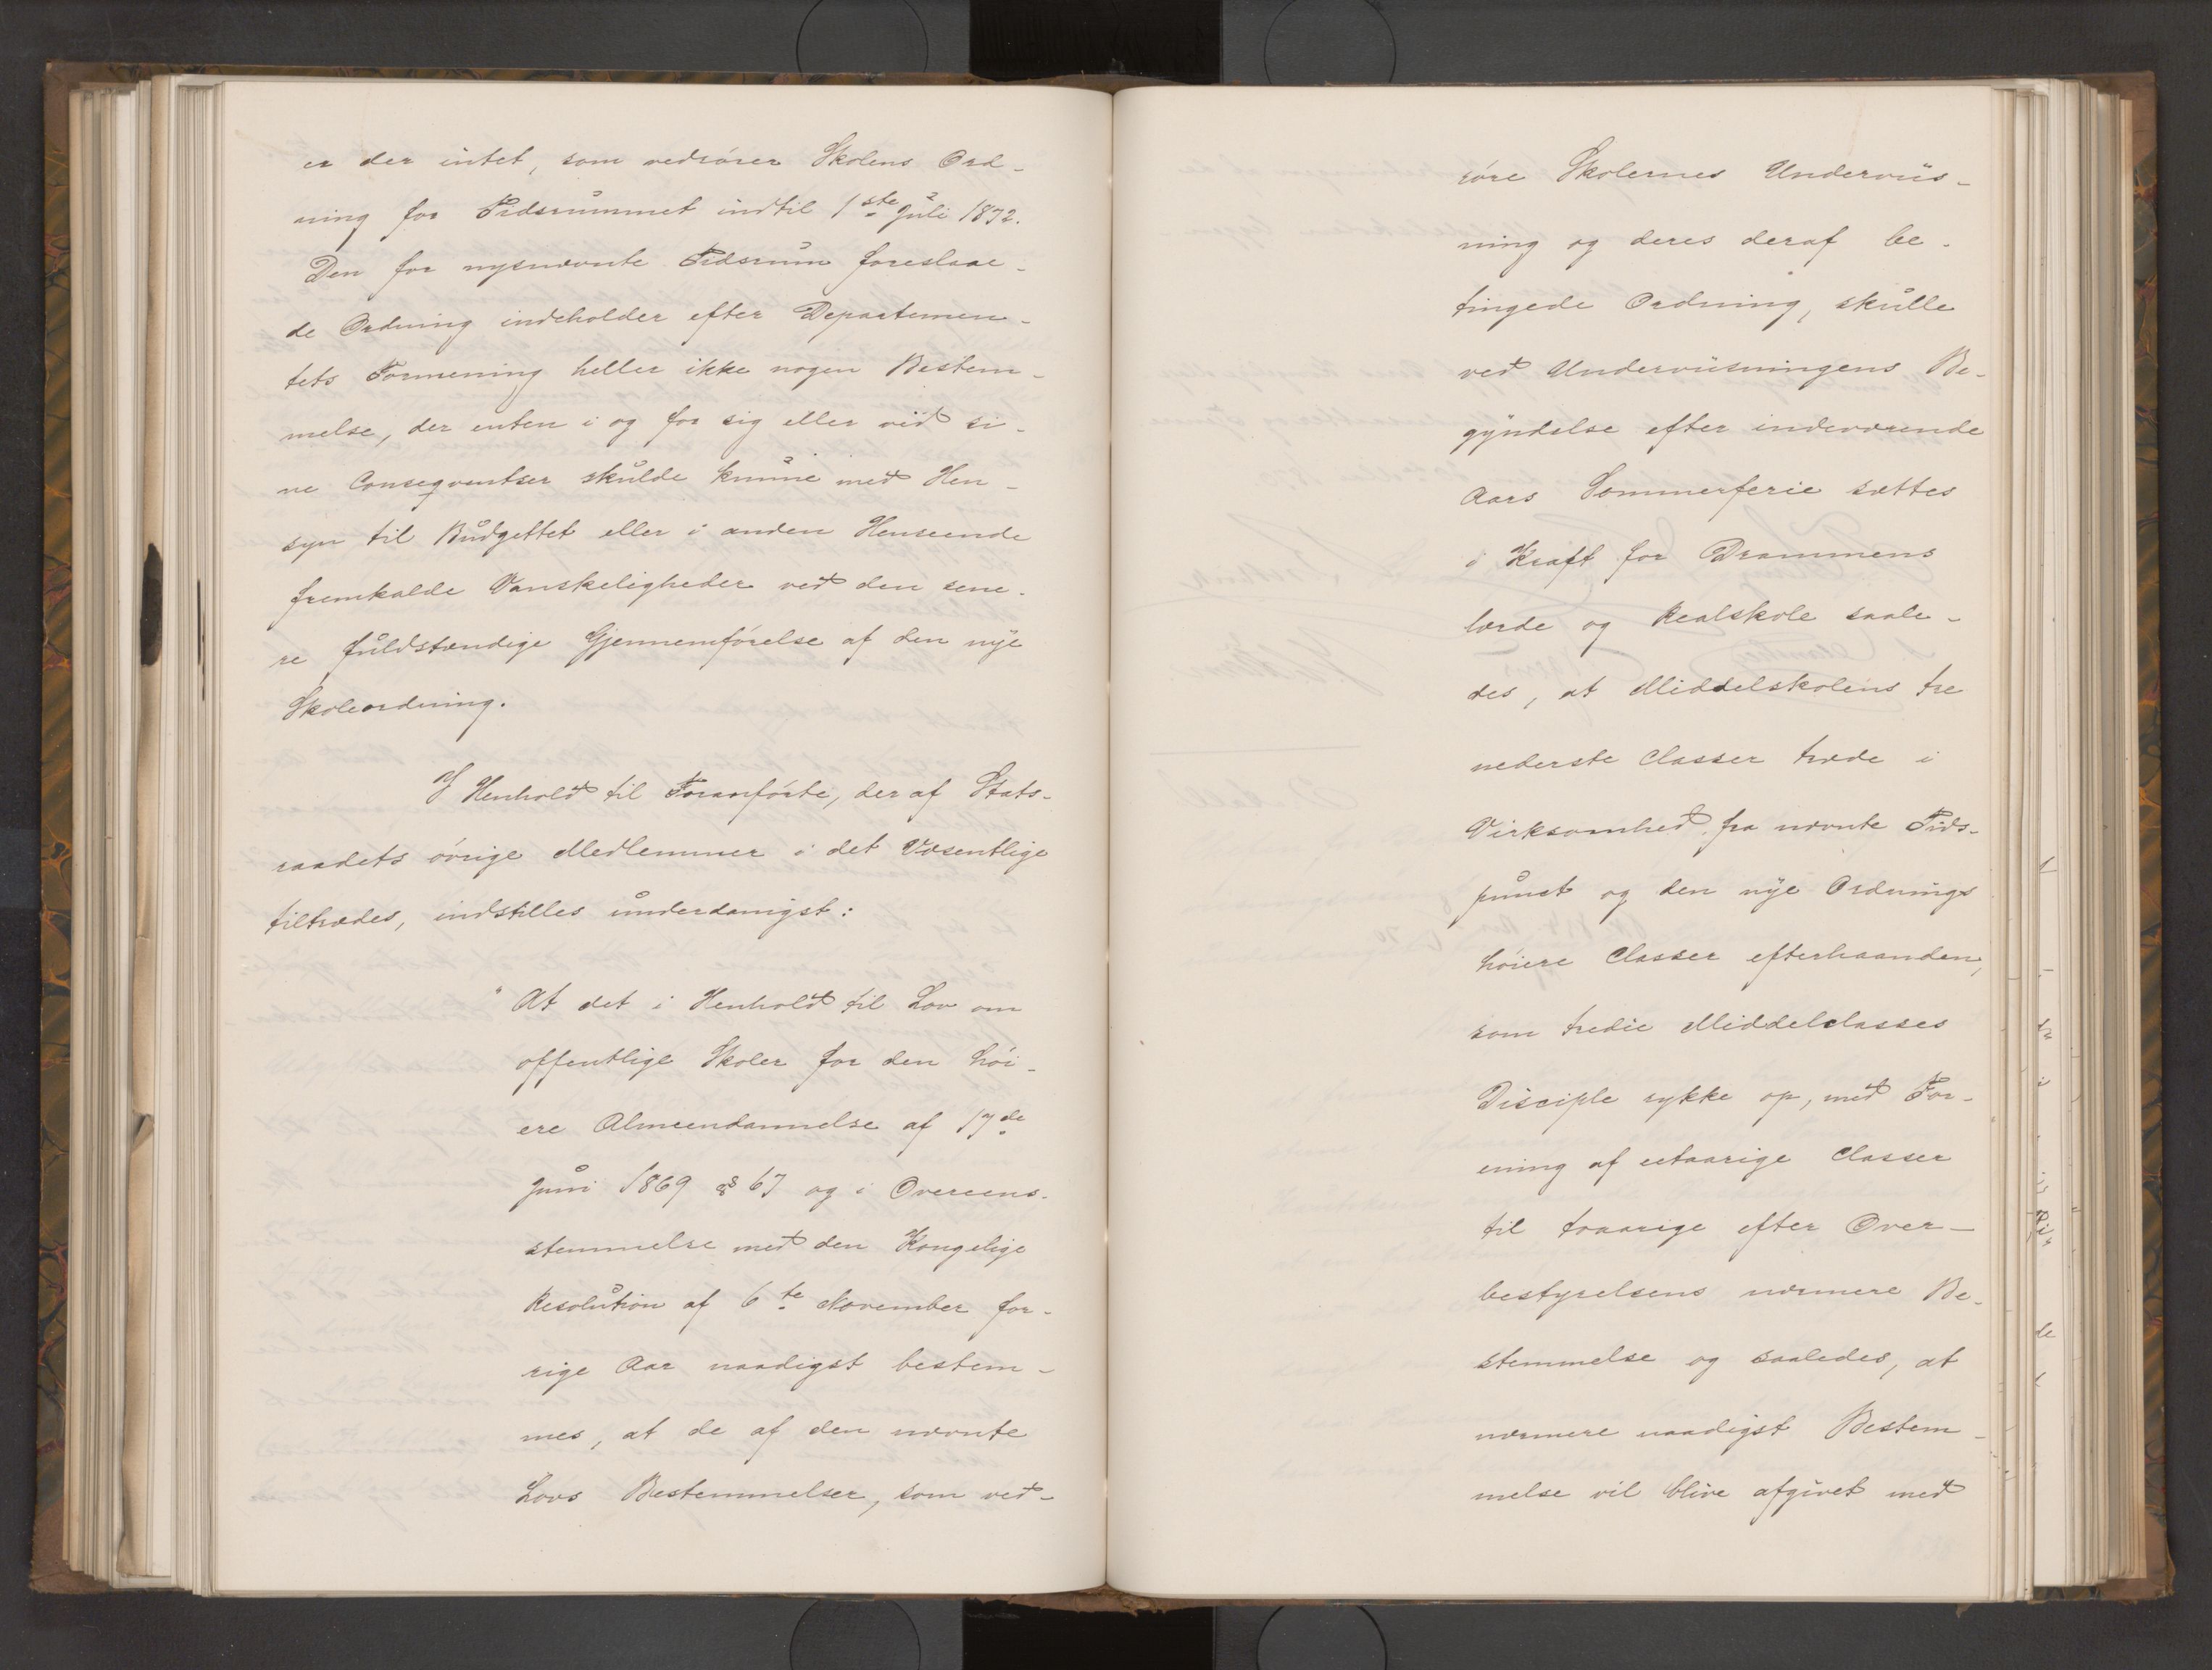 er der intet, som vedrører Skolens Ord-
ning for Tidsrummet indtil 1ste Juli 1872.
Den for nysnævnte Tidsrum foreslaae-
de Ordning indeholder efter Departemen-
tets Formening heller ikke nogen Bestem-
melse, der enten i og for sig eller ved si-
ne Conseqventser skulde kunne med Hen-
syn til Budgettet eller i anden Henseende
fremkalde Vanskeligheder ved den sene-
re fuldstændige Gjennemførelse af den nye
Skoleordning.
I Henhold til Foranførte, der af Stats-
raadets øvrige Medlemmer i det Væsentlige
tiltrædes, indstilles underdanigst:
"At det i Henhold til Lov om
offentlige Skoler for den høi-
ere Almeendannelse af 17de
Juni 1869 § 67 og i Overeens-
stemmelse med den Kongelige
Resolution af 6te November for-
rige Aar naadigst bestem-
mes, at de af den nævnte
Lovs Bestemmelser, som ved-
røre Skolernes Underviis-
ning og deres deraf be-
tingede Ordning, skulle
ved Underviisningens Be-
gyndelse efter indeværende
Aars Sommerferie sættes
i Kraft for Drammens
lærde og Realskole saale-
des, at Middelskolens tre
nederste Classer træde i
Virksomhed fra nævnte Tids-
punct og den nye Ordnings
høiere Classer efterhaanden,
som tredie Middelclasses
Disciple rykke op, med For-
ening af eetaarige Classer
til toaarige efter Over-
bestyrelsens nærmere Be-
stemmelse og saaledes, at
nærmere naadigst Bestem-
melse vil blive afgivet med